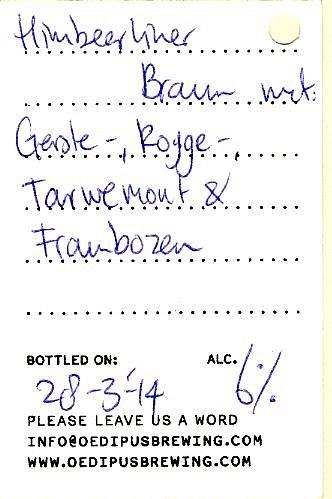 Himbeerliner
Braun met
Gerste-, Rogge-,
Tarwemout &
Frambozen
BOTTLED ON: ALC.
28-3-'14 6%
PLEASE LEAVE US A WORD
INFO@OEDIPUSBREWING.COM
WWW.OEDIPUSBREWING.COM